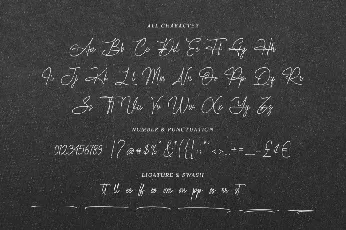 ALL CHARACTER
Aa Bb Cc Dd Ee Ff Gg Hh
Ii Jj Kk Ll Mm Nn Oo Pp Qq Rr
Ss Tt Uu Vv Ww Xx Yy Zz
NUMBER & PUNCTUATION
0123456789
LIGATURE & SWASH